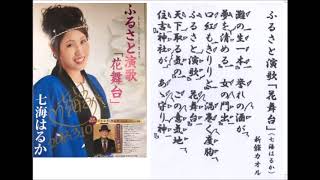 ふるさと演歌
「花舞台」
七海はるか
ふるさと演歌『花舞台』(七海はるか)
カオル
灘の生一本 誉れの酒が、
夢を清める 女の門出
口紅もきりりと 渦巻く度胸
ふるさと演歌 花舞台
天下取る気の この意気地
住吉神社が、あゝ守り神